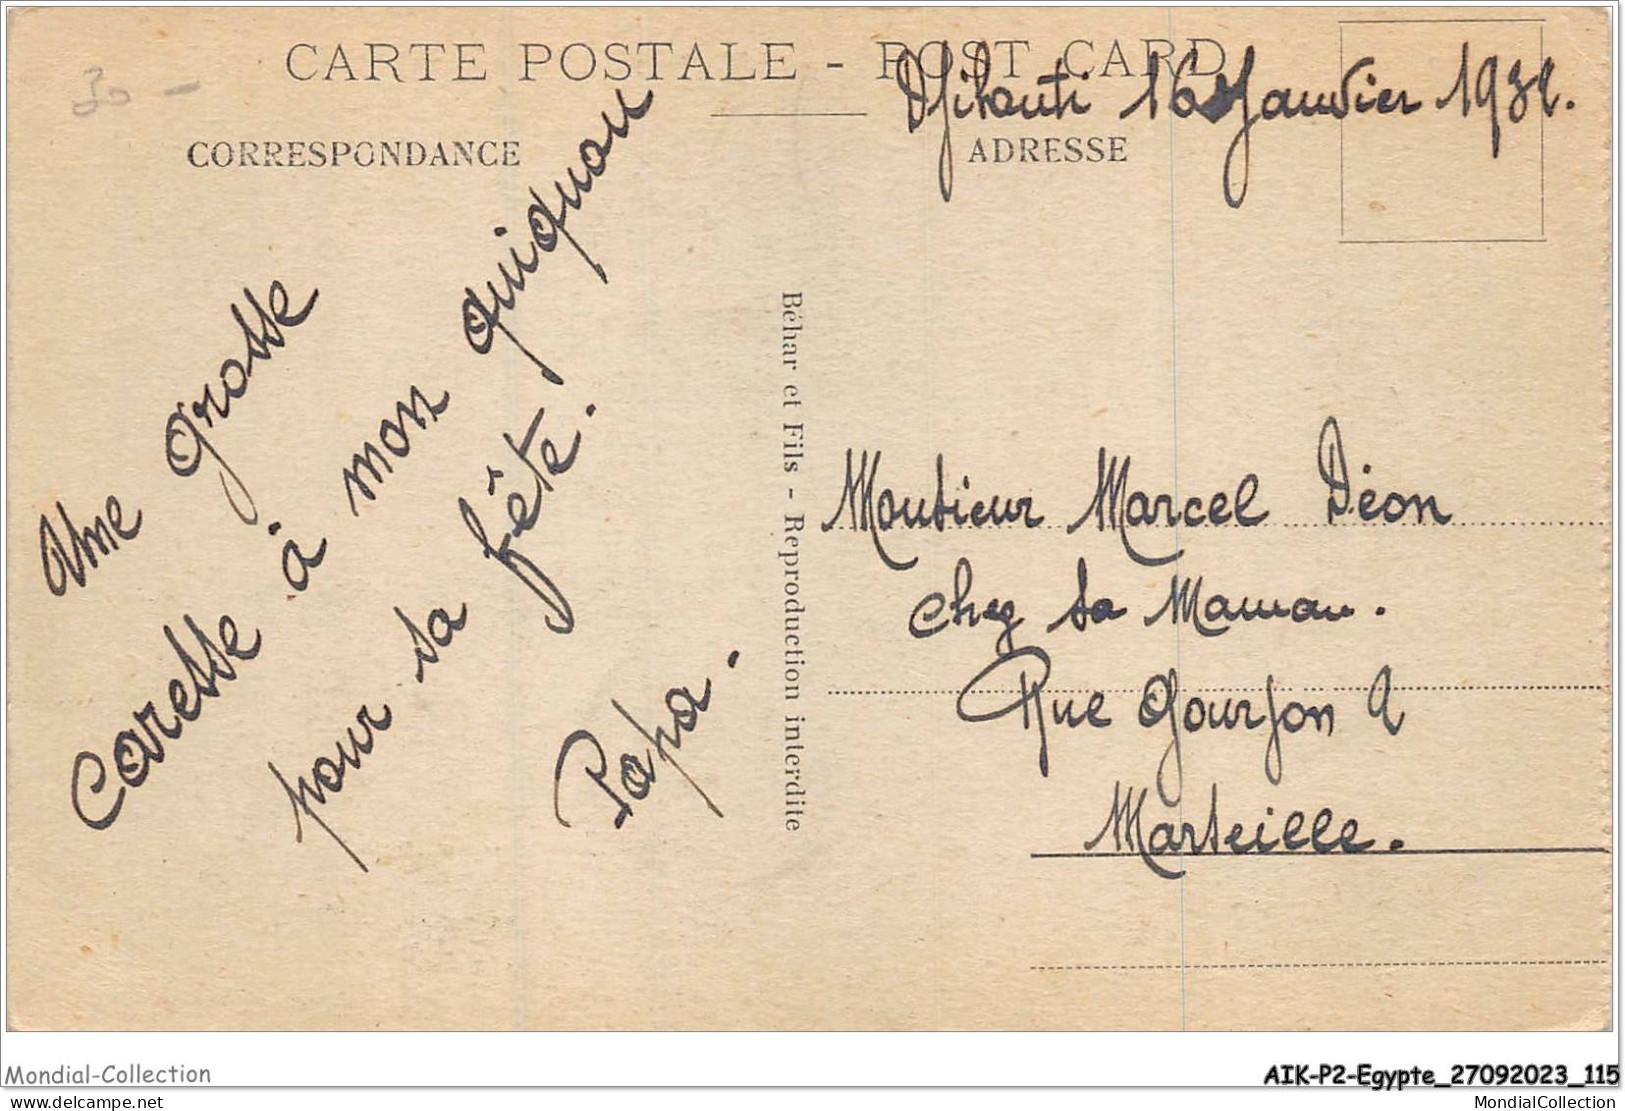 30 -
CARTE POSTALE - POST CARD
Djibouti 16 Janvier 193
CORRESPONDANCE
ADRESSE
Une grosse
Caresse à mon quiquou
pour sa fête.
Papa.
Béhar et Fils - Reproduction interdite
Monsieur Marcel Déon
chez sa Maman.
Rue Gourjon 2
Marseille.
Mondial-Collection
AIK-P2-Egypte_27092023_115
delcampe.net
MondialCollection